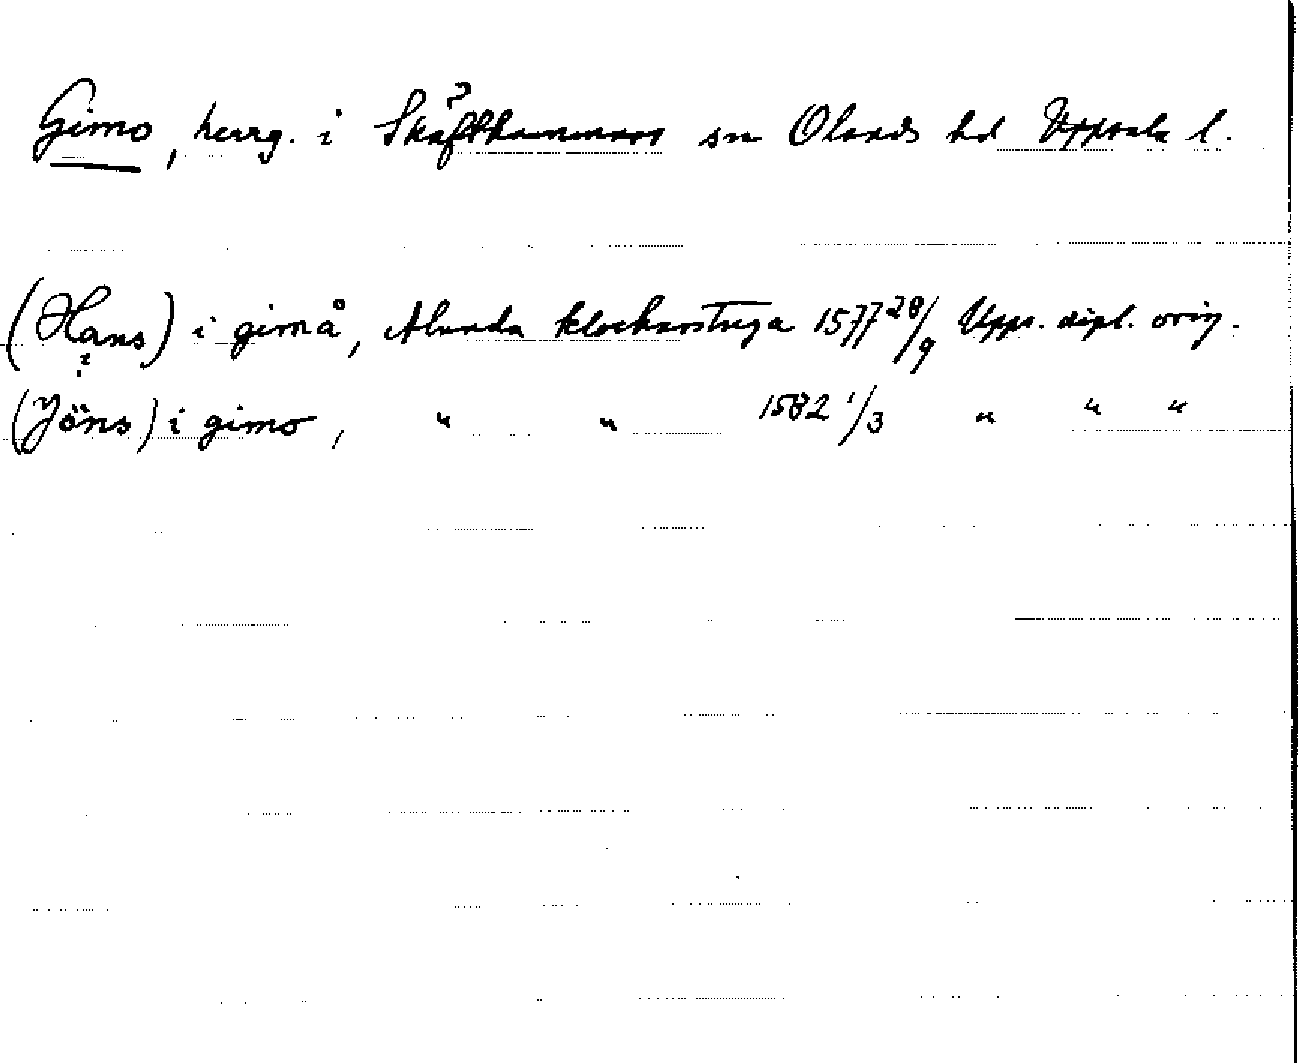 Gimo, herrg. i Skäfthammars sn Olands hd Uppsala l.
(Hans) i gimå, Alunda klockarstuga 1577 28/9 Upps. dipl. orig.
(Jöns) i gimo, " " 1582 1/3 " " "